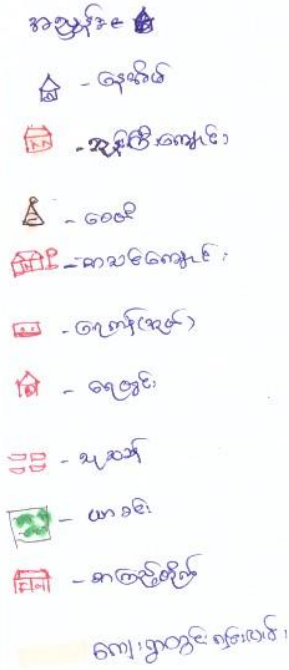 အညွှန်း
- နေအိမ်
- ဘုန်းကြီးကျောင်း
- စေတီ
- စာသင်ကျောင်း
- ရေကန်(အုတ်)
- ရေတွင်း
- သုဿာန်
- ယာခင်း
- စာကြည့်တိုက်
ကျေးရွာတွင်းရှင်းလင်း